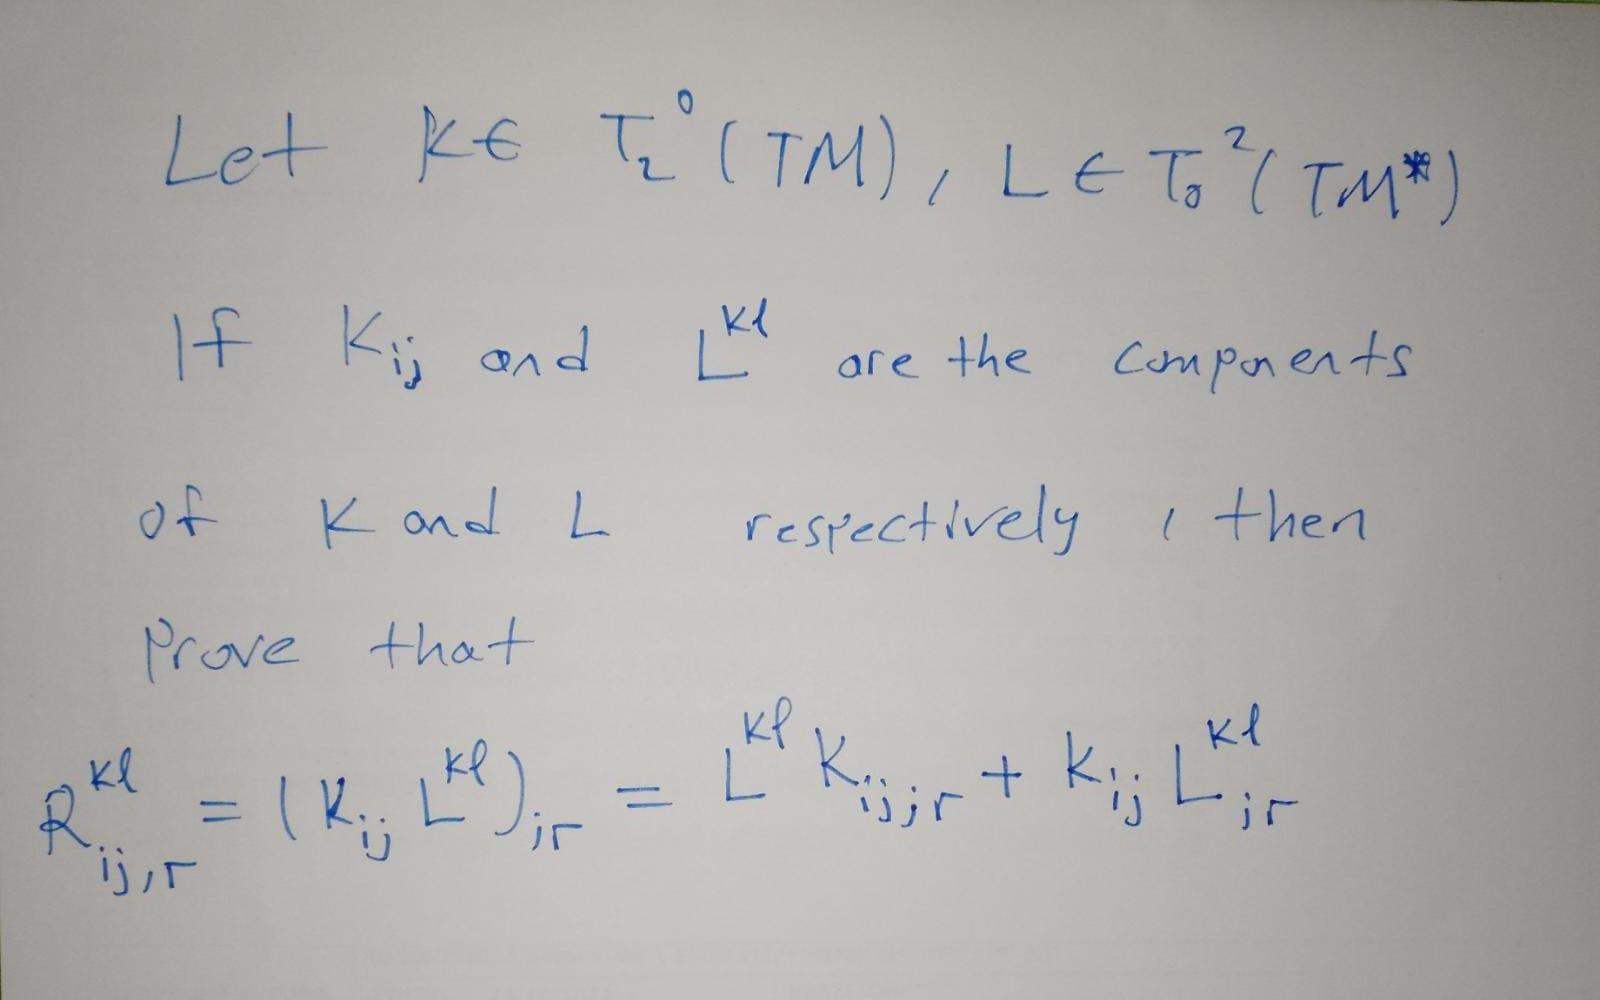 Let K ∈ T₂⁰(TM), L ∈ T₀²(TM*)
If Kᵢⱼ and Lᵏˡ are the components
of K and L respectively, then
Prove that
Rᵏˡᵢⱼ,ᵣ = (Kᵢⱼ Lᵏˡ);ᵣ = Lᵏˡ Kᵢⱼ;ᵣ + Kᵢⱼ Lᵏˡ;ᵣ